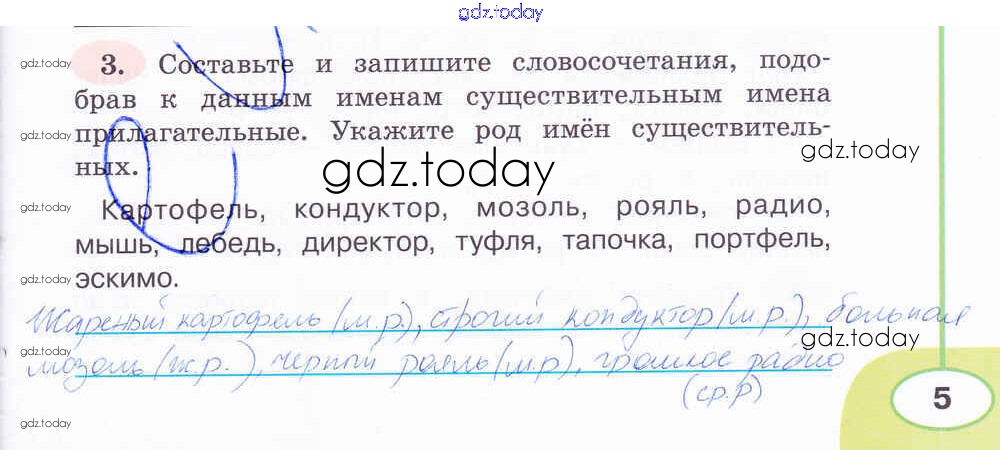 gdz.today
gdz.today
3. Составьте и запишите словосочетания, подо-
брав к данным именам существительным имена
gdz.today
прилагательные. Укажите род имён существитель-
gdz.today
ных.
gdz.today
gdz.today
Картофель, кондуктор, мозоль, рояль, радио,
мышь, лебедь, директор, туфля, тапочка, портфель,
gdz.today
эскимо.
Жареный картофель (м.р.), строгий кондуктор (м.р.), больная
gdz.today
gdz.today
мозоль (ж.р.), черный рояль (м.р), громкое радио
(ср.р)
5
gdz.today